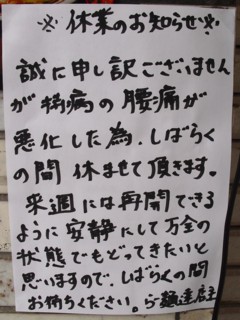 ※休業のお知らせ※
誠に申し訳ございません
が持病の腰痛が
悪化した為、しばらく
の間休ませて頂きます。
来週には再開できる
ように安静にして万全の
状態でもどってきたいと
思いますので、しばらくの間
お待ちください。らー麺達店主